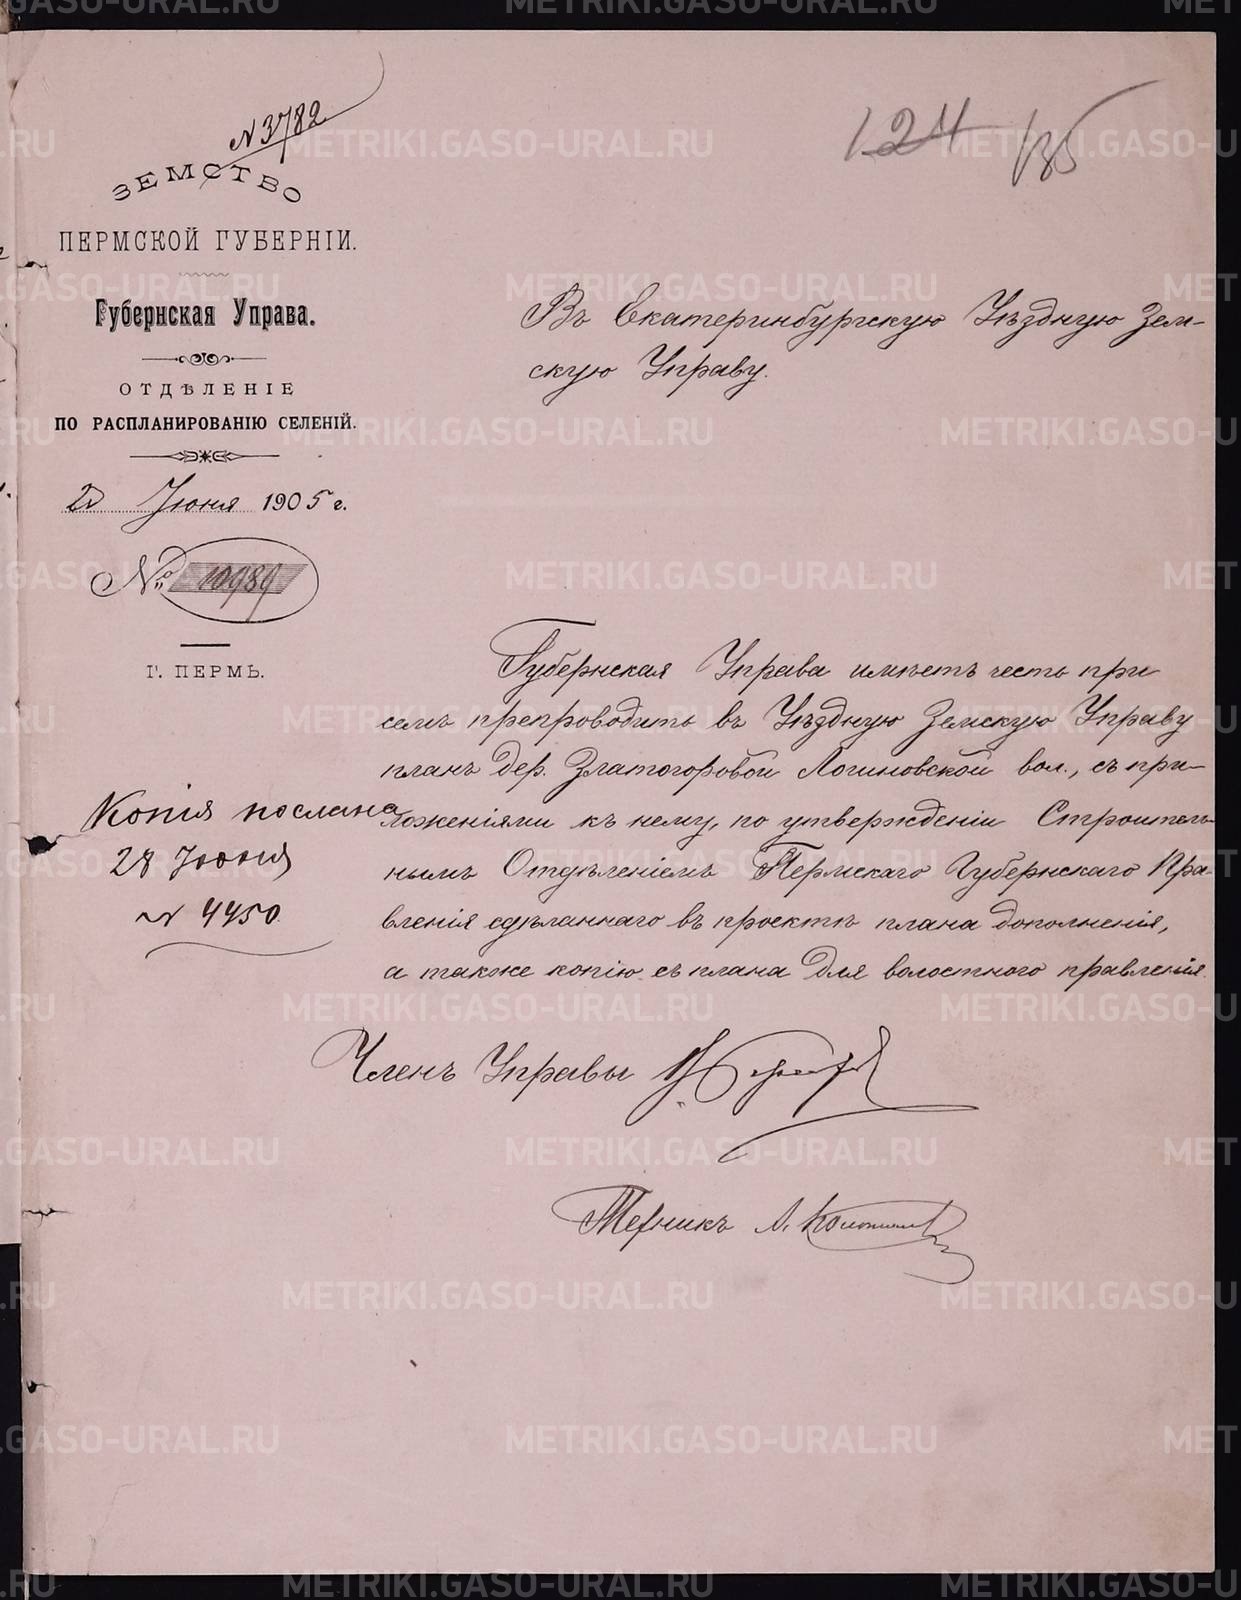 № 3782
124 135
ЗЕМСТВО
ПЕРМСКОЙ ГУБЕРНІИ.
Губернская Управа.
ОТДѢЛЕНІЕ
ПО РАСПЛАНИРОВАНІЮ СЕЛЕНІЙ.
Іюня 1905 г.
№ 10989
Г. ПЕРМЬ.
Въ Екатеринбургскую Уѣздную Зем-
скую Управу.
Губернская Управа имѣетъ честь при
семъ препроводить въ Уѣздную Земскую Управу
планъ дер. Златогоровой Логиновской вол., съ при-
ложеніями къ нему, по утвержденіи Строитель-
нымъ Отдѣленіемъ Пермскаго Губернскаго Пра-
вленія сдѣланнаго въ проектѣ плана дополненія,
а также копію съ плана для волостного правленія.
Копія послана
28 Іюня
№ 4450
Членъ Управы
Техникъ А.
METRIKI.GASO-URAL.RU